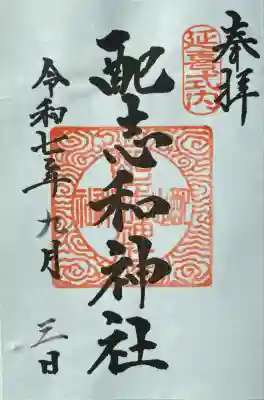 奉拝
延喜式内
配志和神社
令和七年九月三日